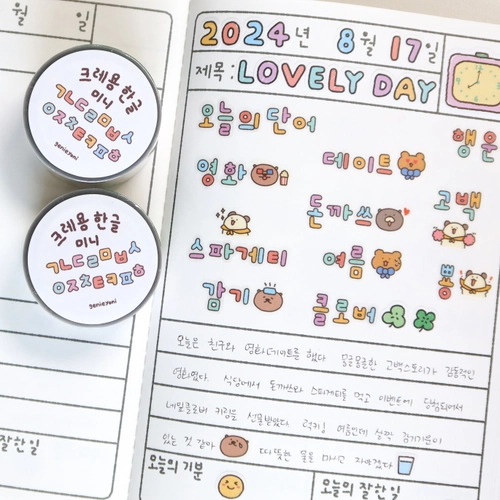 월 일
크레용 한글
미니
ㄱㄴㄷㄹㅁㅂㅅ
ㅇㅈㅊㅌㅋㅍㅎ
genieyuni
크레용 한글
미니
ㄱㄴㄷㄹㅁㅂㅅ
ㅇㅈㅊㅌㅋㅍㅎ
genieyuni
잘한일
2024년 8월 17일
제목: LOVELY DAY
오늘의 단어 행운
영화 데이트 고백
돈까스
스파게티 여름 뽕
감기 클로버
오늘은 친구와 영화데이트를 했다. 몽글몽글한 고백스토리가 감동적인
영화였다. 식당에서 돈까스와 스파게티를 먹고 이벤트에 당첨되어서
네잎클로버 키링을 선물받았다. 럭키! 여름인데 살짝 감기기운이
있는 것 같아 따뜻한 물을 마시고 자야겠다
오늘의 기분 오늘의 잘한일